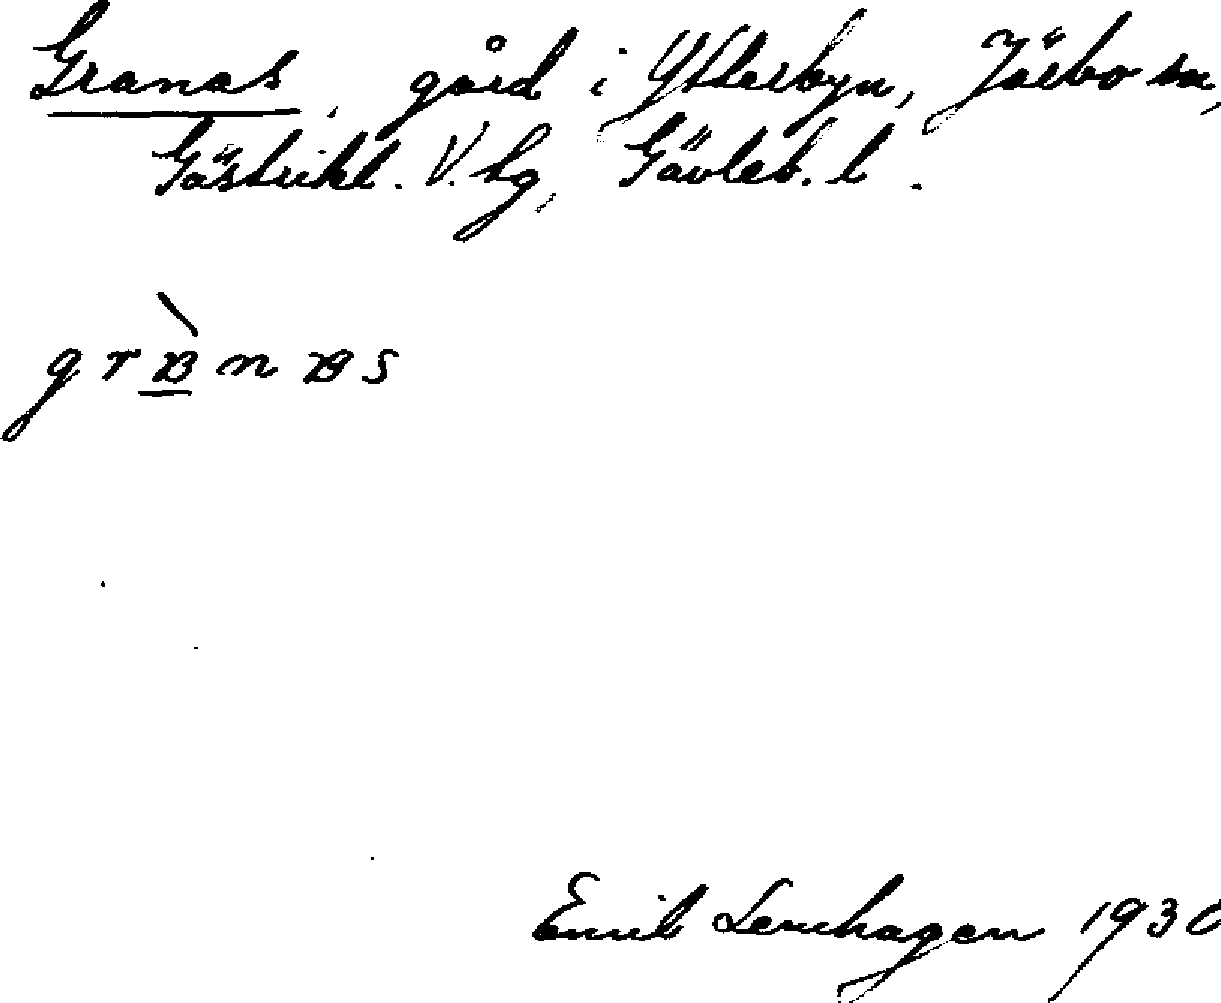 Granas, gård i Ytterbyn, Järbo sn,
Gästrikl. V. tg, Gävleb. l.
Emil Lenhagen 1930